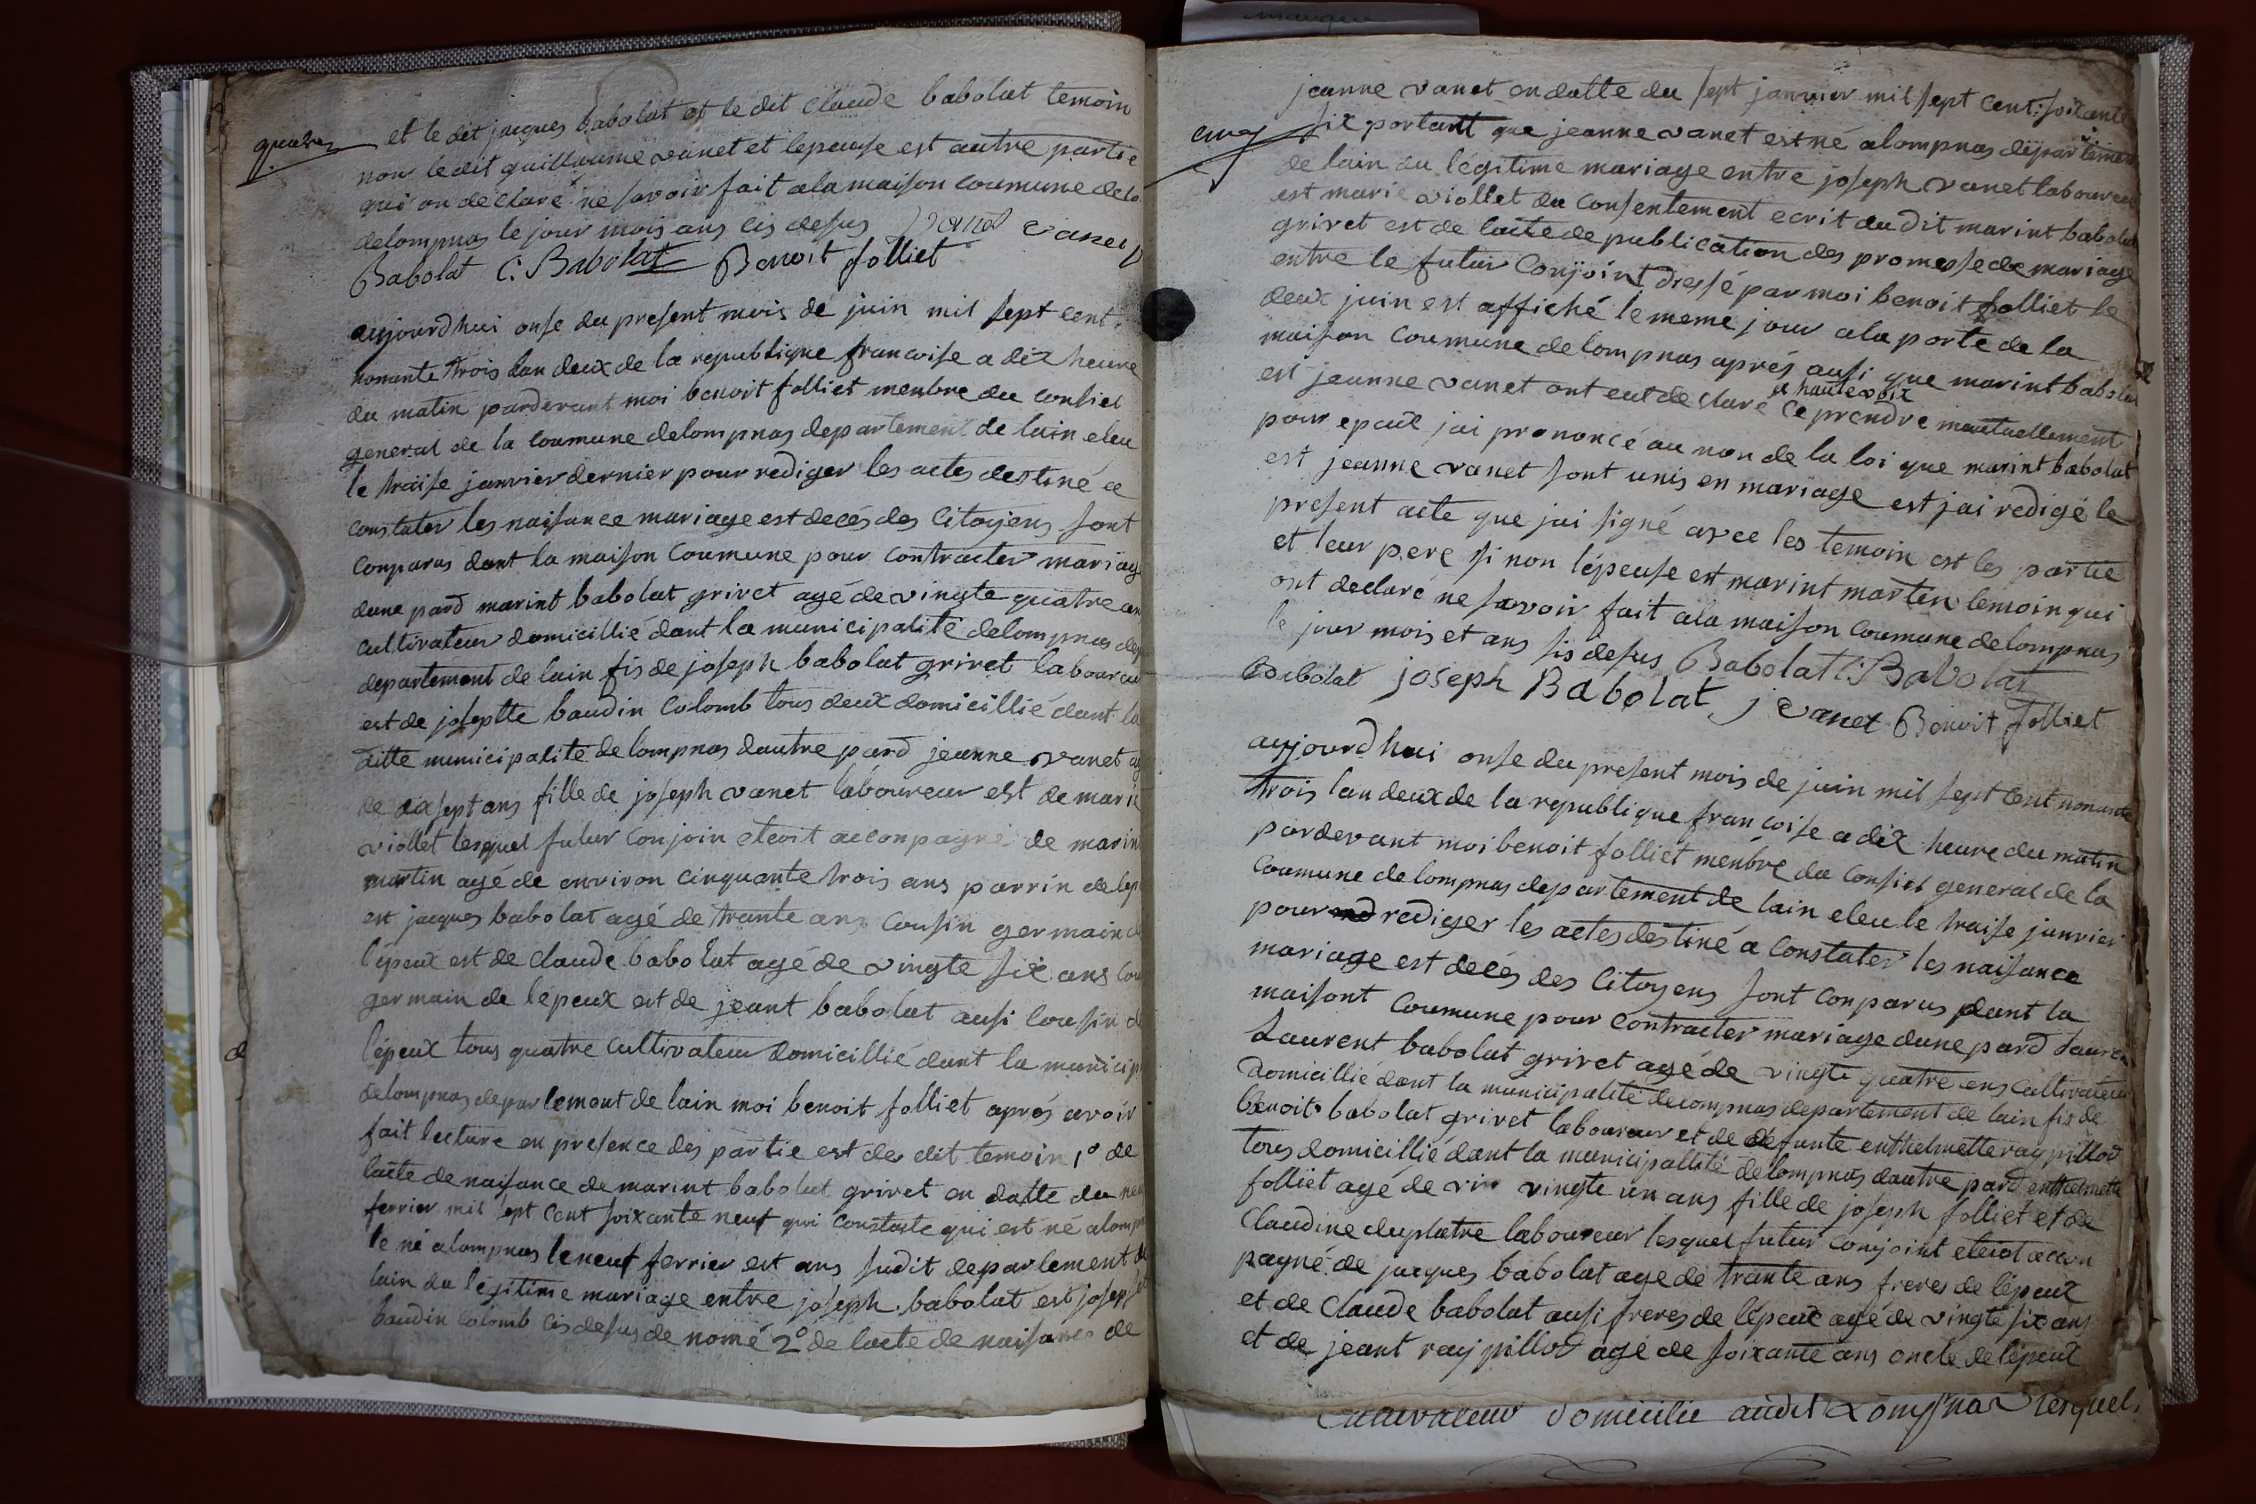 quatre
et le dit jacques babolat et le dit claude babolat temoin
non le dit guillaume vanet et lepeuse est autre partie
qui on déclaré ne savoir fait ala maison coumune de lo
delompnas le jour mois ans cis desus vanet vanet
Babolat C: Babolat Benoit folliet
aujourdhui onse du present mois de juin mil sept cent
nonante trois lan deux de la republique francoise a dix heure
du matin pardevant moi benoit folliet menbre du consiel
general de la coumune delompnas departement de lain eleu
le traise janvier dernier pour rediger les actes destiné a
constater les naisance mariage est decés des Citoyens sont
conparus dant la maison Coumune pour contracter mariag
dune pard marint babolat grivet agé de vingte quatre an
cultivateur domicillié dant la municipalité delompnas dep
departement de lain fis de joseph babolat grivet laboureur
est de josephte baudin Colomb tous deux domicillié dant la
ditte municipalité de lompnas dautre pard jeanne vanet ag
de dixsept ans fille de joseph vanet laboureur est de marie
viollet lesquel futur conjoin etoit acconpagné de marin
martin agé de environ cinquante trois ans parrin de lep
est jacques babolat agé de trante ans cousin germain d
lépeux est de claude babolat agé de vingte six ans cou
germain de lepeux est de jeant babolat ausi cousin d
lépeux tous quatre cultivateur domicillié dant la municip
delompnas departement de lain moi benoit folliet aprés avoir
fait lecture en presence des partie est des dit temoin 1° de
lacte de naisance de marint babolat grivet en datte du neu
fevrier mil sept cent soixante neuf qui constaste qui est né alompn
le né alompnas le neuf fevrier est ans sudit departement de
lain du légitime mariage entre joseph babolat est joseph
baudin colomb cis desus de nomé 2° de lacte de naisance de
cinq
jeanne vanet en datte du sept janvier mil sept cent: soixante
six portant que jeanne vanet est né alompnas departement
de lain du légitime mariage entre joseph vanet laboureur
est marie viollet du consentement ecrit du dit marint babolat
grivet est de lacte de publication des promesse de mariage
entre le futur conjoint dressé par moi benoit folliet le
deux juin est affiché le meme jour ala porte de la
maison coumune delompnas aprés ausi que marint babolat
est jeanne vanet ont eut declaré a haute voix ce prendre mautuellement
pour epoux jai prononcé au non de la loi que marint babolat
est jeanne vanet sont unis en mariage est jai redigé le
present acte que jai signé avec les temoin est les partie
et leur pere si non lépeuse est marint martin temoin qui
ont declaré ne savoir fait ala maison coumune delompnas
le jour mois et ans sis desus Babolat C: Babolat
Babolat joseph Babolat j vanet Benoit folliet
aujourdhui onse du present mois de juin mil sept cent nonante
trois lan deux de la republique francoise a dix heure du matin
pardevant moi benoit folliet menbre du consiel general de la
coumune delompnas departement de lain eleu le traise janvier
pour rediger les actes destiné a constater les naisance
mariage est decés des Citoyens sont conparus dant la
maisont coumune pour contracter mariage dune pard
Laurent babolat grivet agé de vingte quatre ans cultivateur
domicillié dant la municipalité de lompnas departement de lain fis de
benoit babolat grivet laboureur et de defunte enthelmette raypillod
tous domicillié dant la municipallité delompnas dautre pard enthelmette
folliet agé de vingte un ans fille de joseph folliet et de
Claudine duplatre laboureur lesquel futur conjoint etoiot accon
pagné de jacques babolat age de trante ans freres de lépeux
et de Claude babolat ausi freres de lépeux agé de vingte six ans
et de jeant raypillod agé de soixante ans oncle de lépeux
Cultivateur domicilié audit Lompnas lesquel.